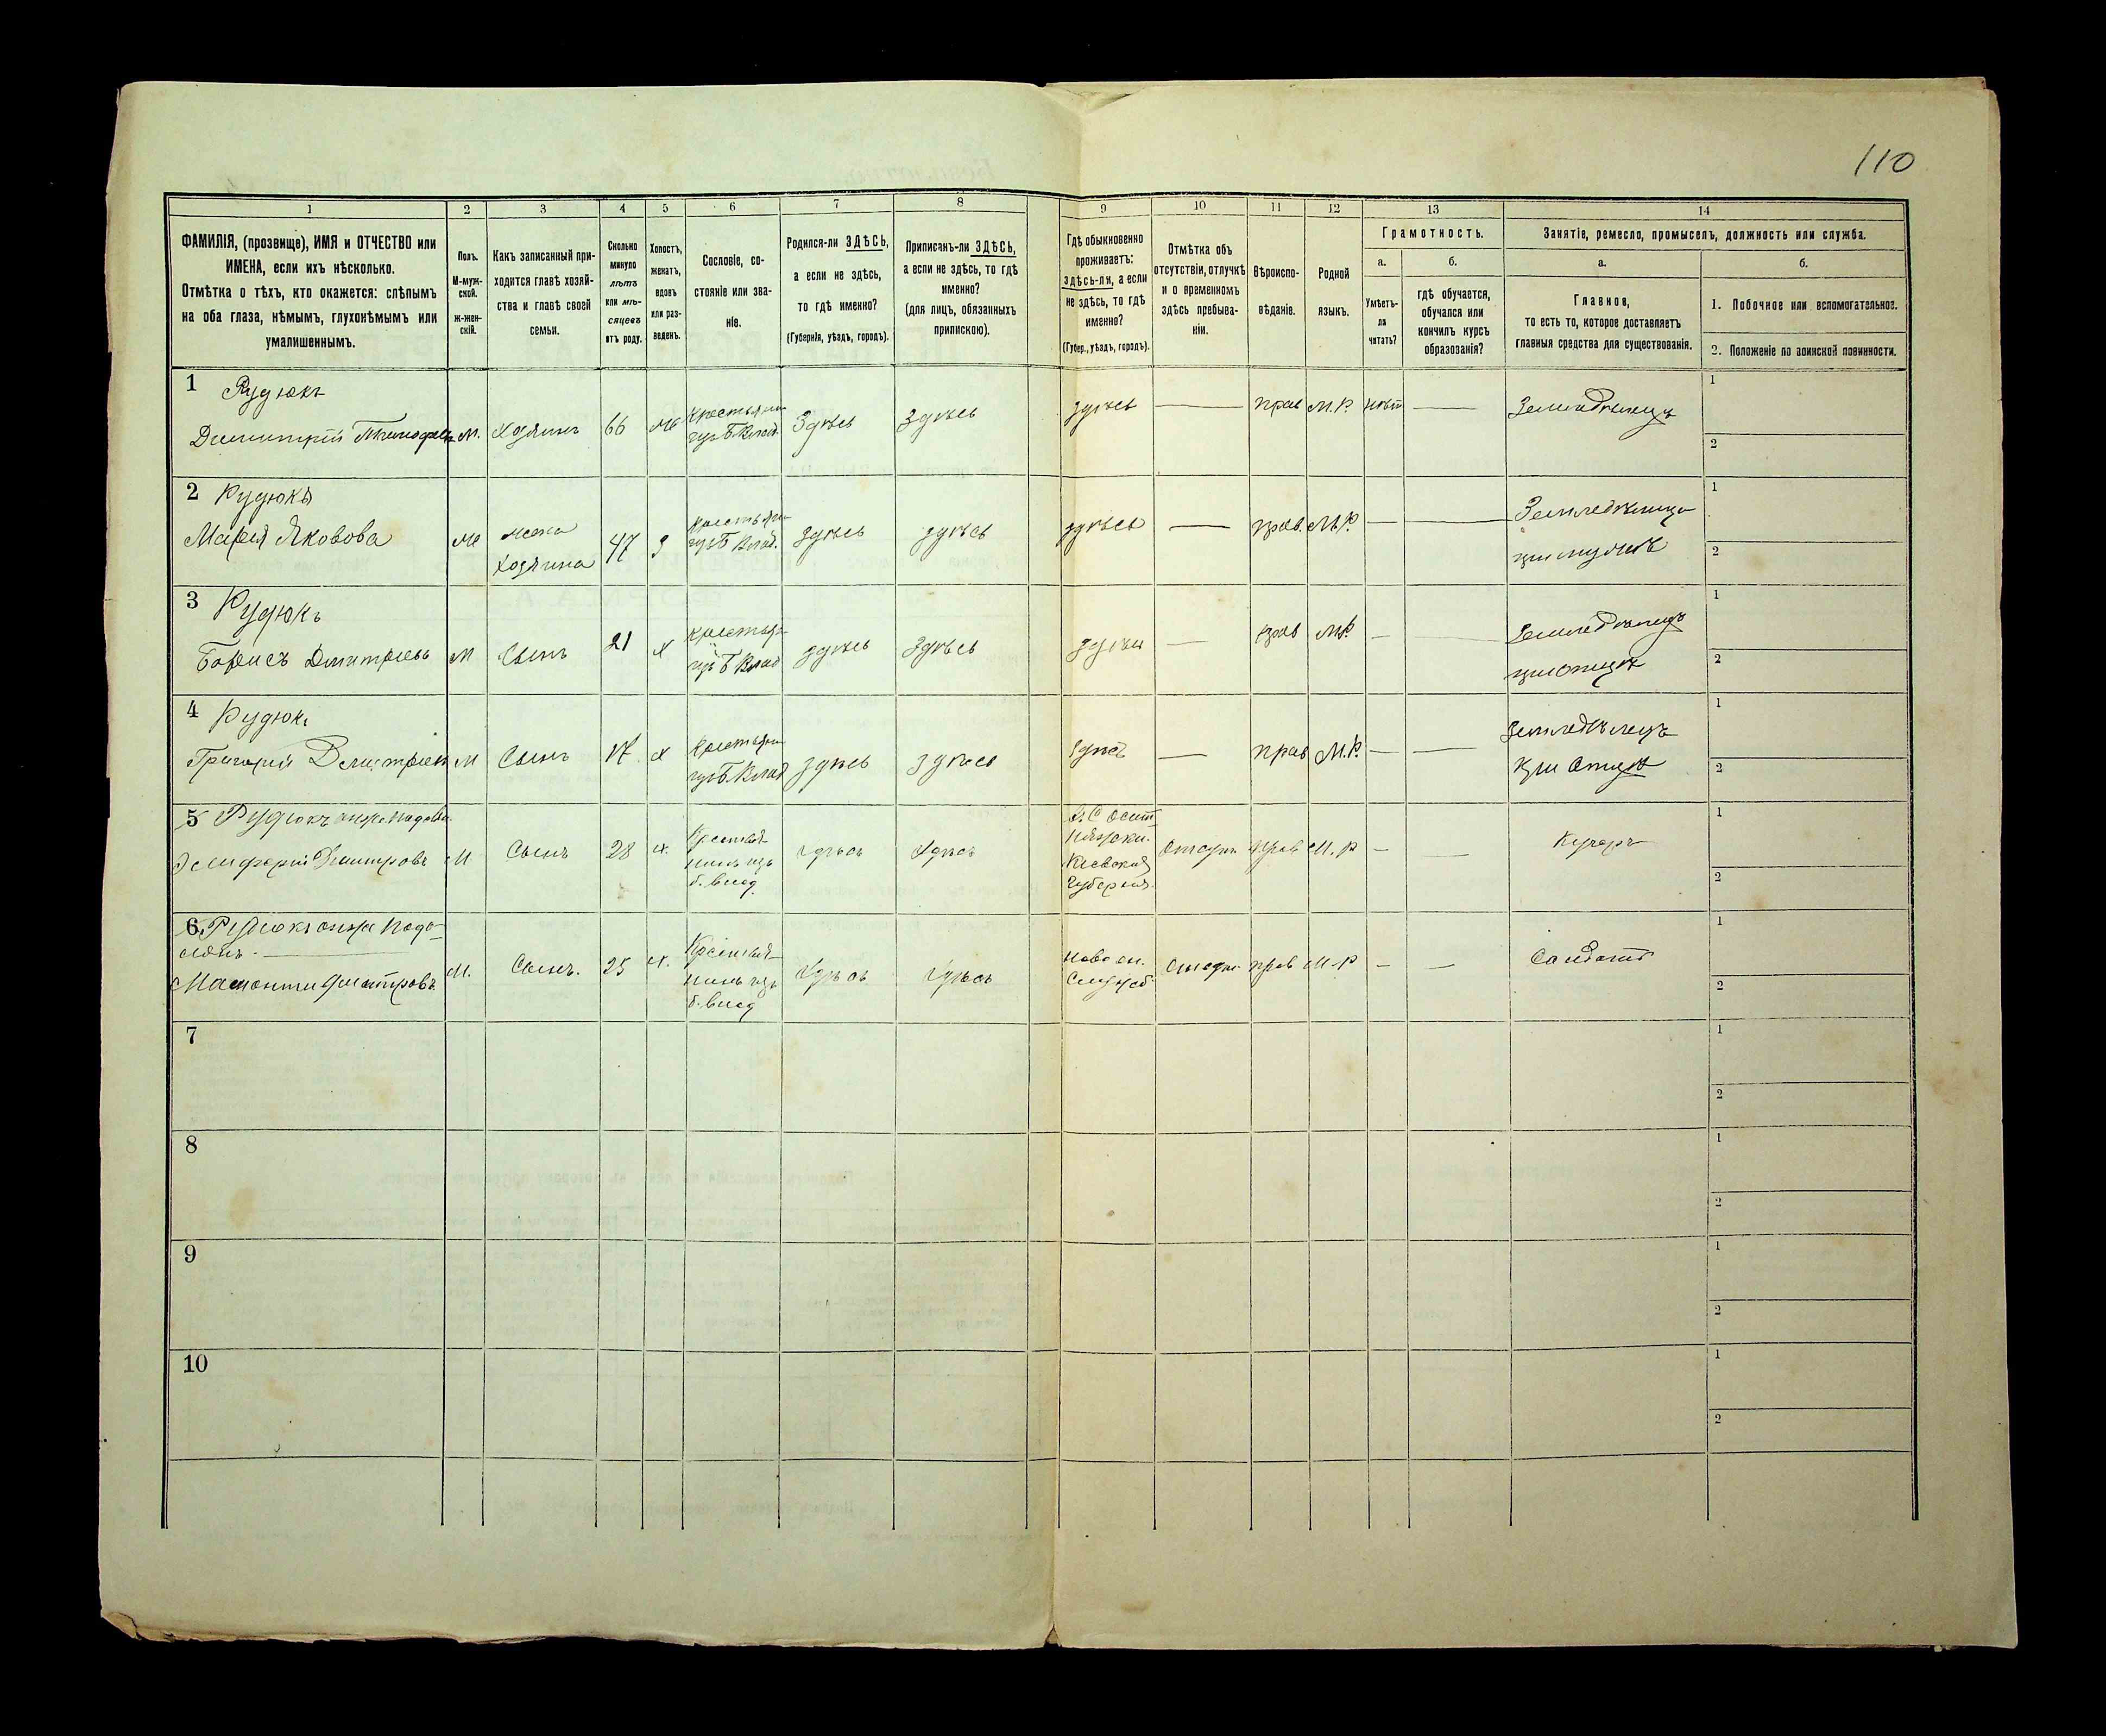 110
1
2
3
4
5
6
7
8
9
10
11
12
13
14
ФАМИЛІЯ, (прозвище), ИМЯ и ОТЧЕСТВО или
ИМЕНА, если ихъ нѣсколько.
Отмѣтка о тѣхъ, кто окажется: слѣпымъ
на оба глаза, нѣмымъ, глухонѣмымъ или
умалишеннымъ.
Полъ.
М-муж-
ской.
ж-жен-
скій.
Какъ записанный при-
ходится главѣ хозяй-
ства и главѣ своей
семьи.
Сколько
минуло
лѣтъ
или мѣ-
сяцевъ
отъ роду.
Холостъ,
женатъ,
вдовъ
или раз-
веденъ.
Сословіе, со-
стояніе или зва-
ніе.
Родился-ли ЗДѢСЬ,
а если не здѣсь,
то гдѣ именно?
(Губернія, уѣздъ, городъ).
Приписанъ-ли ЗДѢСЬ,
а если не здѣсь, то гдѣ
именно?
(для лицъ, обязанныхъ
припискою).
Гдѣ обыкновенно
проживаетъ:
здѣсь-ли, а если
не здѣсь, то гдѣ
именно?
(Губер., уѣздъ, городъ).
Отмѣтка объ
отсутствіи, отлучкѣ
и о временномъ
здѣсь пребыва-
ніи.
Вѣроиспо-
вѣданіе.
Родной
языкъ.
Грамотность.
а.
Умѣетъ-
ли
читать?
б.
гдѣ обучается,
обучался или
кончилъ курсъ
образованія?
Занятіе, ремесло, промыселъ, должность или служба.
а.
Главное,
то есть то, которое доставляетъ
главныя средства для существованія.
б.
1. Побочное или вспомогательное.
2. Положеніе по воинской повинности.
1
Рудюкъ
Димитрій
М.
Хозяинъ
66
Крестьянин
изъ Б. Влад.
Здѣсь
Здѣсь
здѣсь
прав
М.Р.
нѣт
Земледѣлецъ
1
2
2
Рудюкъ
Мария Яковова
жена
Хозяина
47
з
Крестьян
изъ Б. Влад.
здѣсь
здѣсь
здѣсь
прав.
М.Р.
Земледѣлица
при мужѣ
1
2
3
Рудюкъ
Борисъ Дмитриевъ
М
Сынъ
21
х
Крестьян
изъ Б Влад
здѣсь
Здѣсь
здѣсь
прав
М.Р.
Земледѣлецъ
при отцѣ
1
2
4
Рудюкъ
Григорій Дмитріев
М
Сынъ
17
х
Крестьян
изъ Б. Влад
здѣсь
здѣсь
здѣсь
прав
М.Р.
Земледѣлецъ
при Отцѣ
1
2
5
Рудюкъ
Дмитровъ
М
Сынъ
28
х.
Крестья-
нинъ изъ
б. влад.
здѣсь
здѣсь
Кіевской
губерніи.
Отсутс
прав
М.Р
Кучеръ
1
2
6
Рудюкъ
Дмитровъ
М.
Сынъ.
25
х.
Крестья-
нинъ изъ
б. влад
здѣсь
здѣсь
прав
М-Р
Солдатъ
1
2
7
1
2
8
1
2
9
1
2
10
1
2